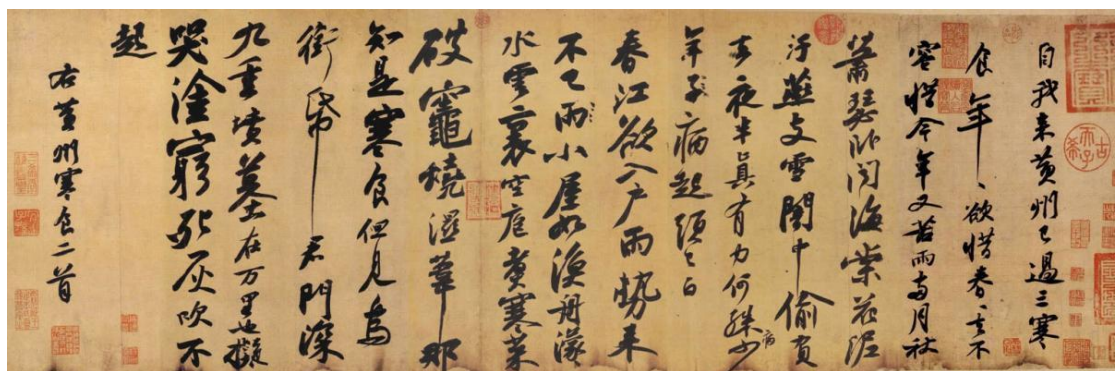 自我来黄州已過三寒
食年〻欲惜春〻去不
容惜今年又苦雨兩月秋
蕭瑟卧聞海棠花泥
汙燕支雪闇中偷負
去夜半真有力何殊少
病
年子病起頭已白
春江欲入戶雨勢来
不已雨小屋如漁舟濛〻
水雲裏空庖煑寒菜
破竈燒濕葦那
知是寒食但見烏
銜帋君門深
九重墳墓在万里也擬
哭塗窮死灰吹不
起
右黄州寒食二首
古希天子